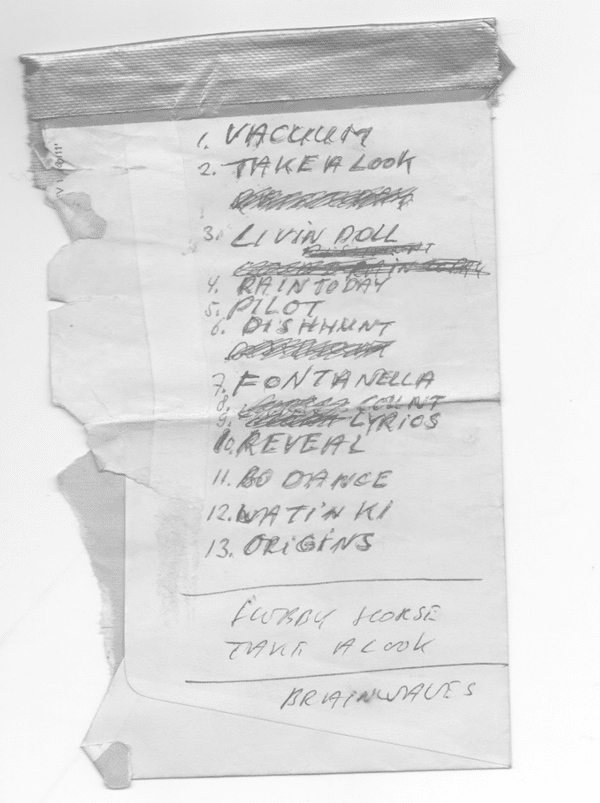 1. VACUUM
2. TAKE A LOOK
3. LIVIN DOLL
4. RAIN TODAY
5. PILOT
6. DISHHUNT
7. FONTANELLA
8. COUNT
9. LYRIOS
10. REVEAL
11. BO DANCE
12. WATIN KI
13. ORIGINS
HORSE
TAKE A LOOK
BRAINWAVES